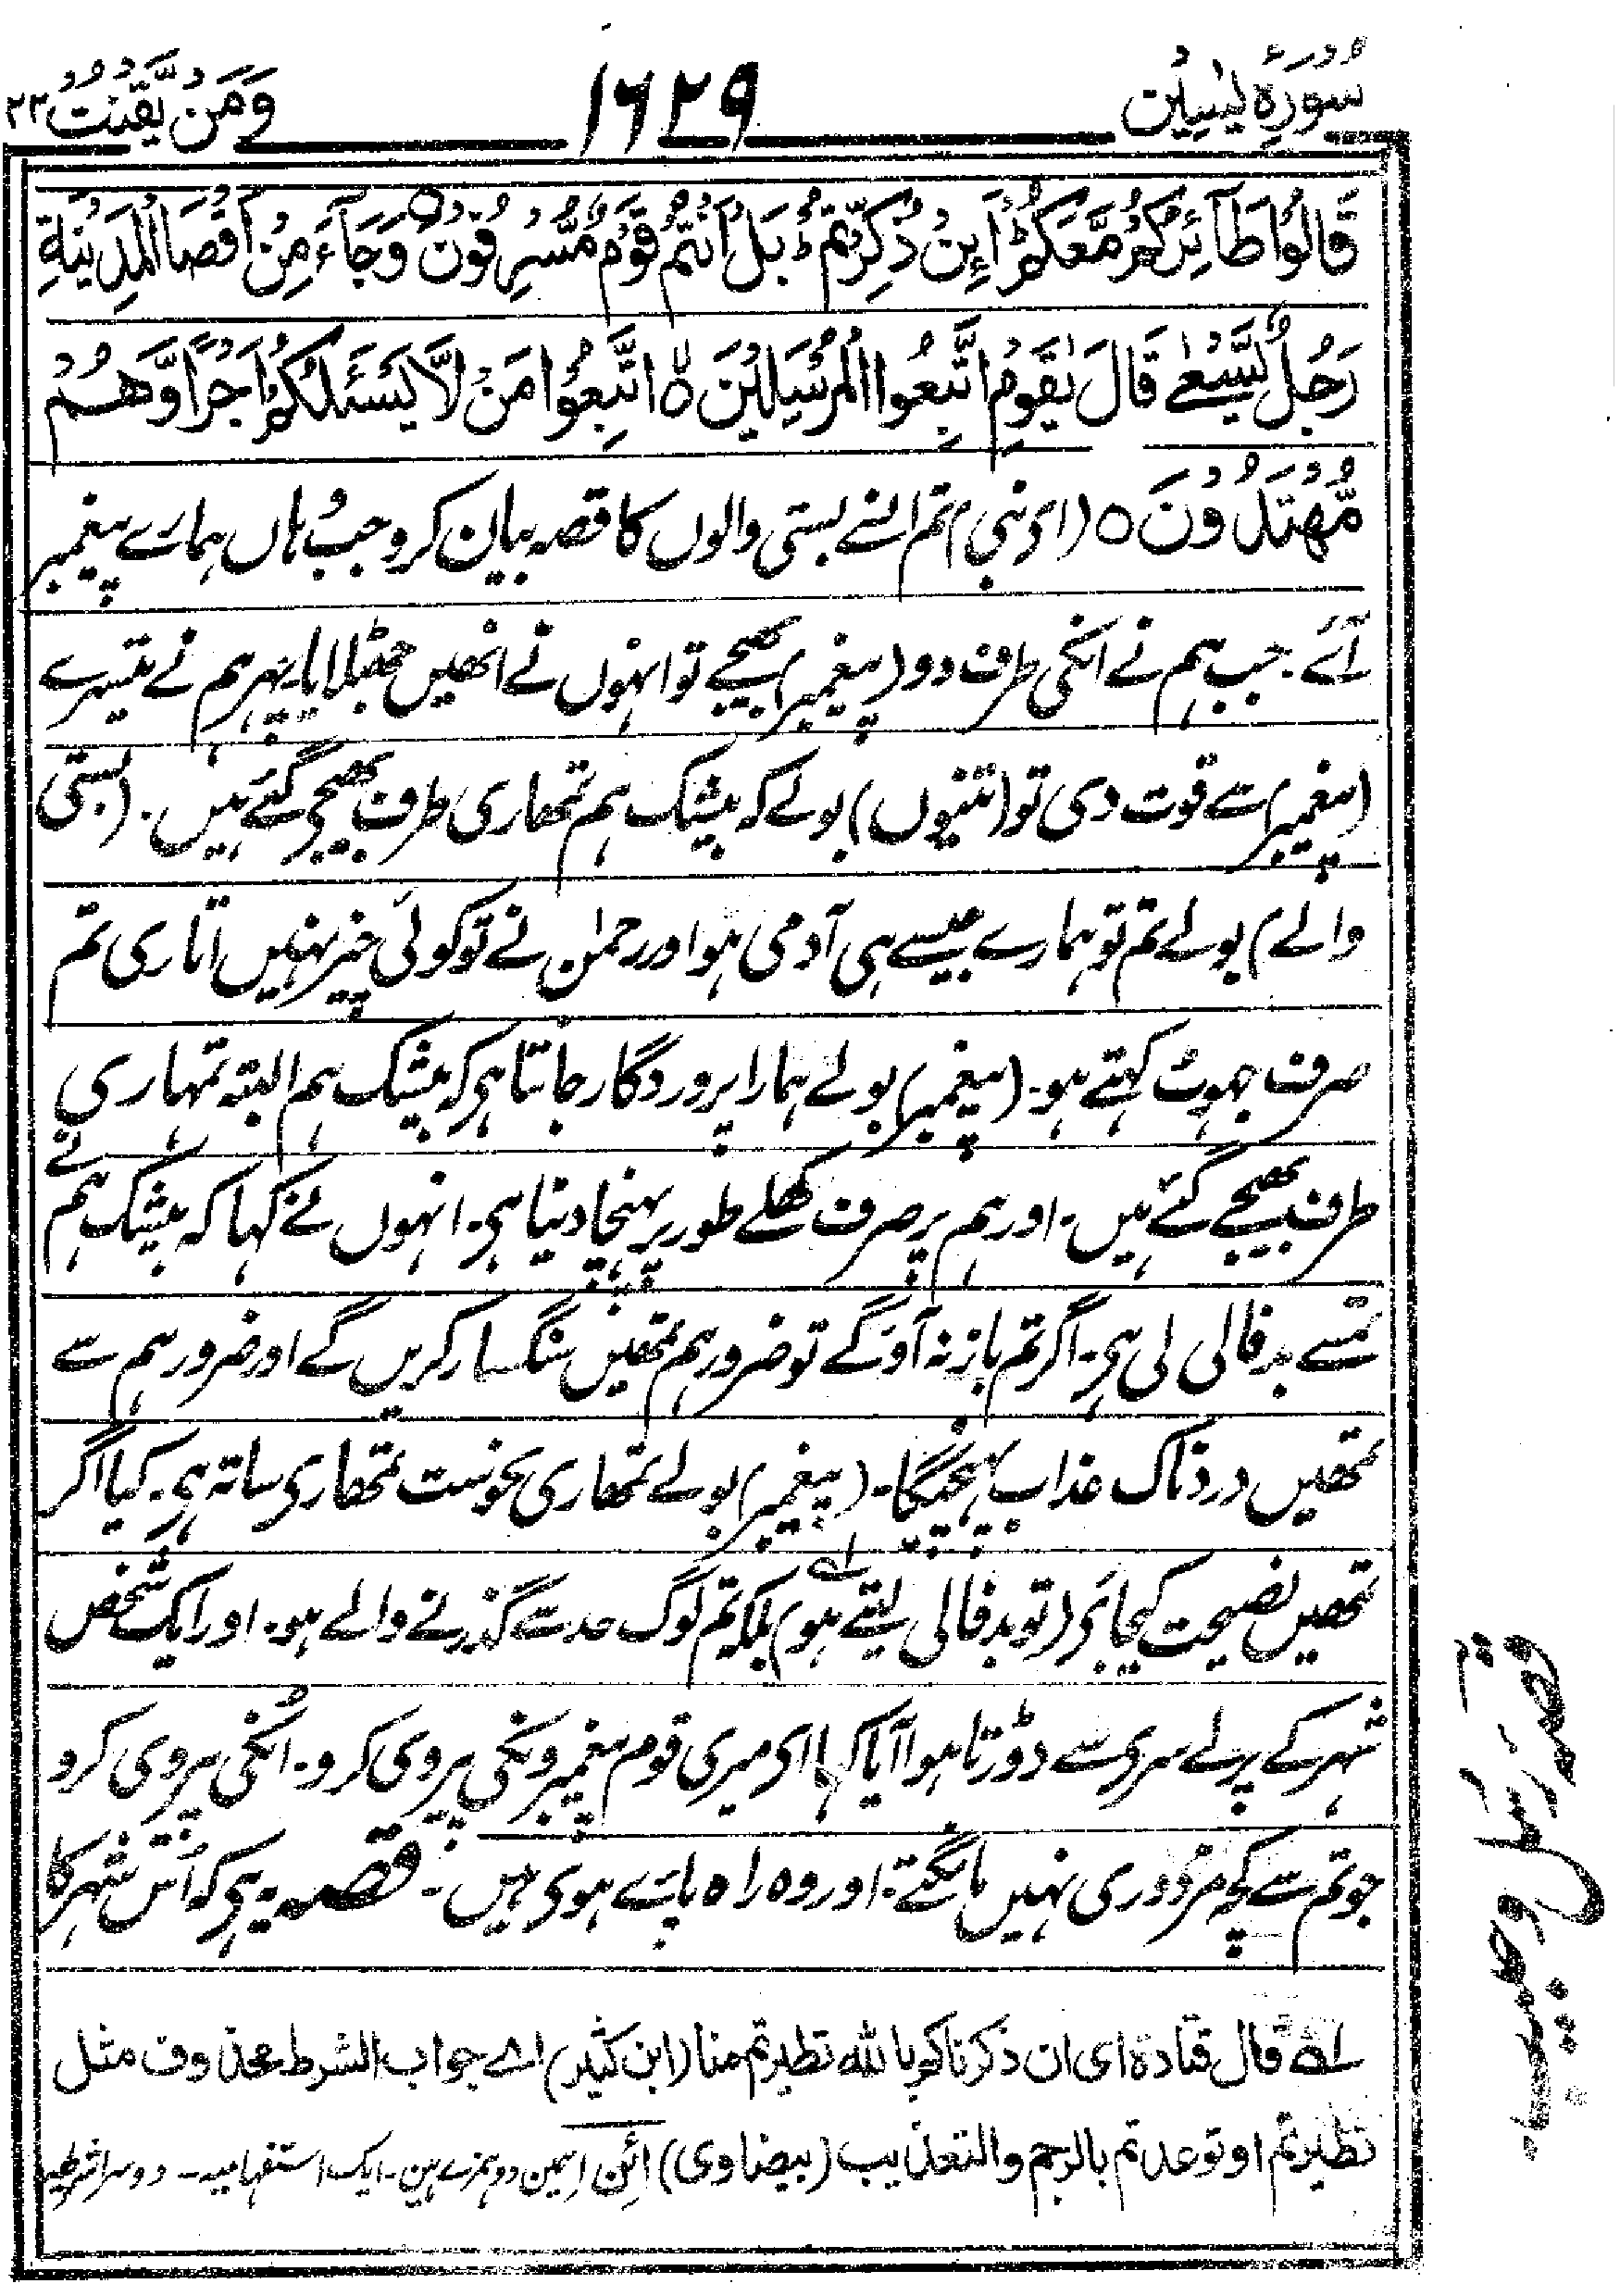 سُوْرَةِ يٰسٓيْن ١٦٢٩ وَمَنْ يَّقْنُتْ ٢٢
قَالُوْا طَآئِرُكُمْ مَّعَكُمْ ؕ اَئِنْ ذُكِّرْتُمْ ؕ بَلْ اَنْتُمْ قَوْمٌ مُّسْرِفُوْنَ ○ وَجَآءَ مِنْ اَقْصَا الْمَدِيْنَةِ
رَجُلٌ يَّسْعٰى قَالَ يٰقَوْمِ اتَّبِعُوا الْمُرْسَلِيْنَ ○ۙ اتَّبِعُوْا مَنْ لَّا يَسْئَلُكُمْ اَجْرًا وَّهُمْ
مُّهْتَدُوْنَ ○ (ای نبی) تم انسے بستی والوں کا قصہ بیان کرو جب وہاں ہمارے پیغمبر
آئے۔ جب ہم نے انکی طرف دو (پیغمبر) بھیجے تو انہوں نے انھیں جھٹلایا۔ پہر ہم نے تیسرے
(پیغمبر) سے قوت دی تو (تینوں) بولے کہ بیشک ہم تمھاری طرف بھیجے گئے ہیں۔ (بستی
والے) بولے تم تو ہمارے جیسے ہی آدمی ہو اور رحمٰن نے تو کوئی چیز نہیں اتاری تم
صرف جہوٹ کہتے ہو۔ (پیغمبر) بولے ہمارا پروردگار جانتا ہی کہ بیشک ہم البتہ تمہاری
طرف بھیجے گئے ہیں۔ اور ہم پر صرف کھلے طور پر پہنچا دینا ہی۔ انہوں نے کہا کہ بیشک ہم نے
تمسے بدفالی لی ہی۔ اگر تم باز نہ آؤگے تو ضرور ہم تمھیں سنگسار کریں گے اور ضرور ہم سے
تمھیں دردناک عذاب پہنچیگا۔ (پیغمبر) بولے تمھاری نحوست تمھاری ساتہ ہی۔ کیا اگر
تمھیں نصیحت کیجائی (تو بدفالی لیتے ہو) ۱؎ بلکہ تم لوگ حد سے گذرنے والے ہو۔ اور ایک شخص
شہر کے پرلے سری سے دوڑتا ہوا آیا کہا ای میری قوم پیغمبرونکی پیروی کرو۔ اُنکی پیروی کرو
جو تم سے کچہ مزدوری نہیں مانگتے۔ اور وہ راہ پاۓ ہوی ہیں۔ قصہ یہ ہی کہ اُس شہر کا
۱؎ قال قتادة ای ان ذكرناكم بالله تطيرتم منا (ابن كثير) اے جواب الشرط محذوف مثل
تطيرتم او توعدتم بالرجم والتعذيب (بيضاوی) اَئِن اسمین دو ہمزے ہین۔ ایک استفہامیہ۔ دوسرا شرطیہ
قصۂ رسل و حبیب